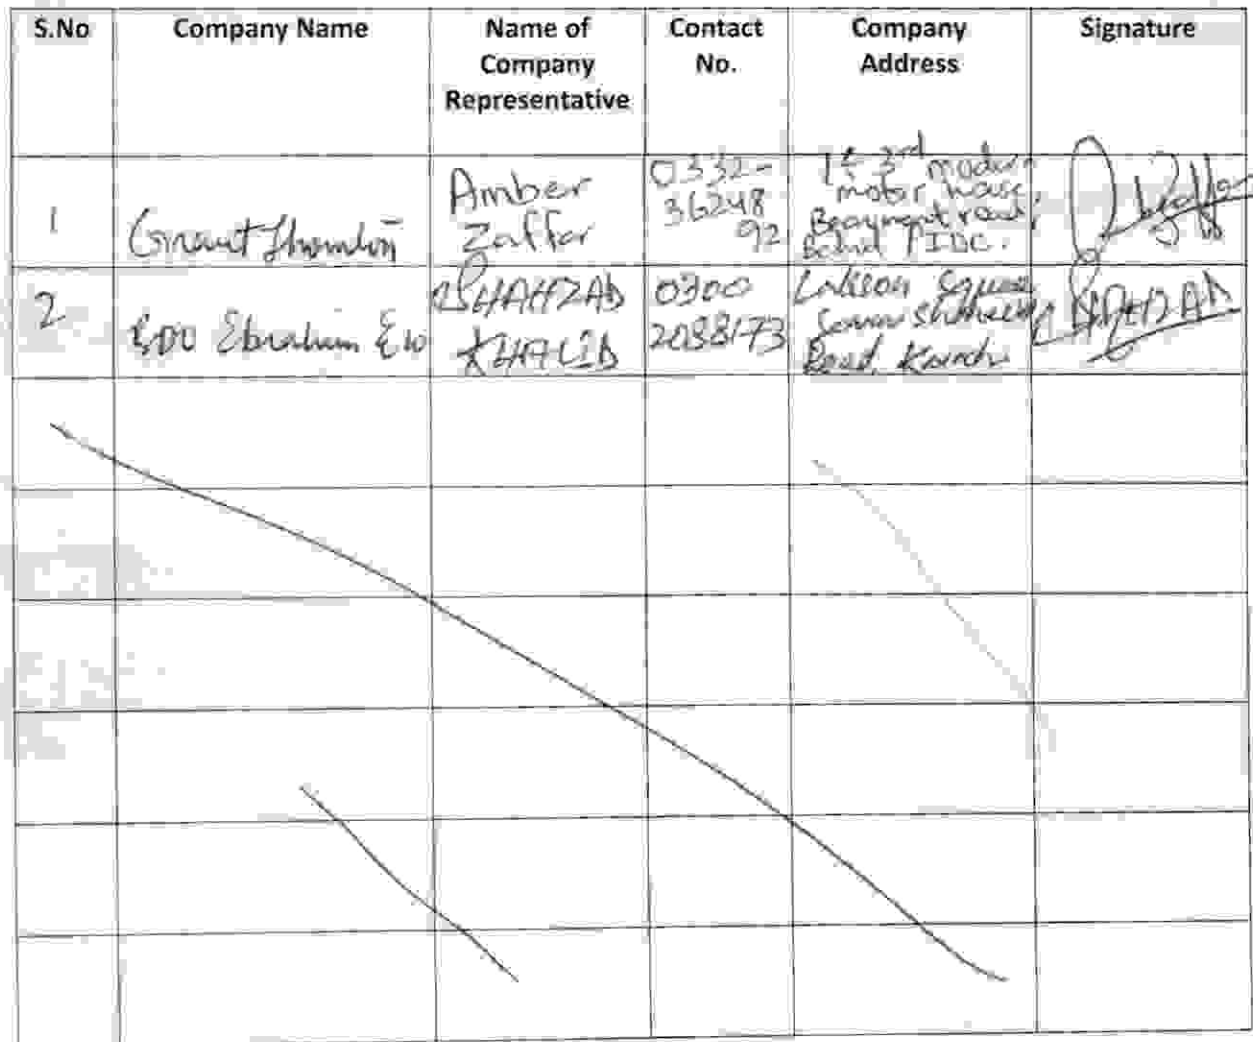 S.No Company Name Name of Company Representative Contact No. Company Address Signature
1 Grant Thornton Amber Zaffar 0332-3624892 1st & 3rd modern motor house, Beaumont road, Behind PIDC.
2 BDO Ebrahim & Co SHAHZAD KHALID 0300 2088173 Lakson Square Road, Karachi SHAHZAD